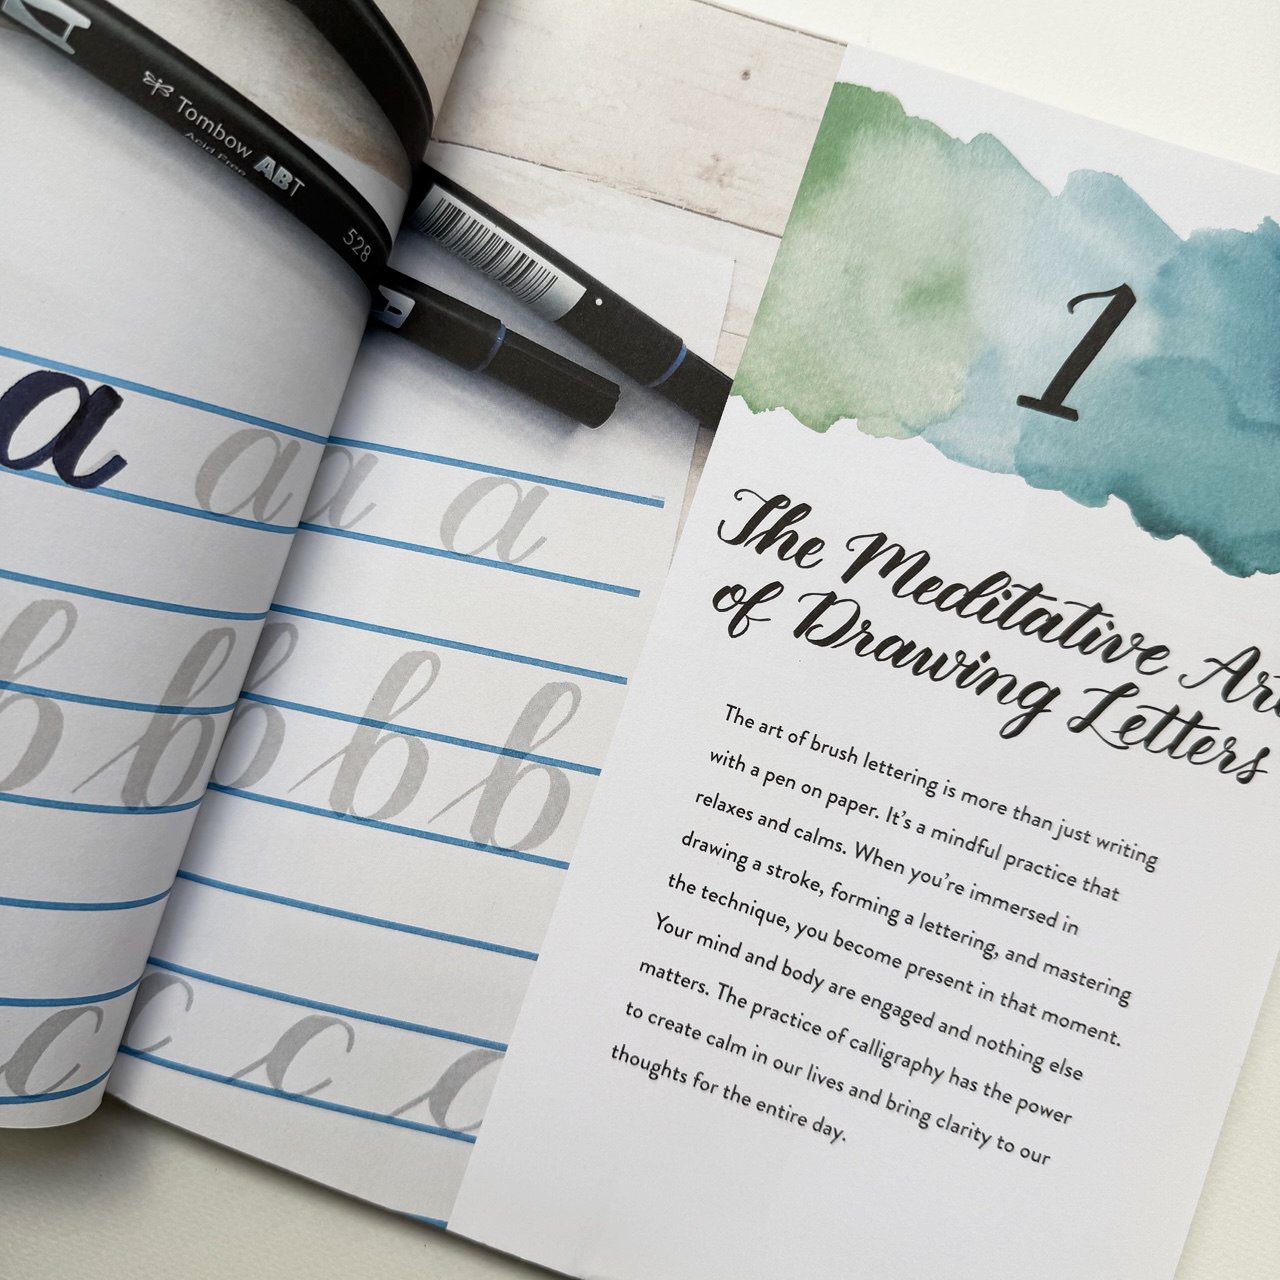 Tombow ABT
Acid Free
528
a a a a
b b b b b
c c c c
1
The Meditative Art
of Drawing Letters
The art of brush lettering is more than just writing
with a pen on paper. It's a mindful practice that
relaxes and calms. When you're immersed in
drawing a stroke, forming a lettering, and mastering
the technique, you become present in that moment.
Your mind and body are engaged and nothing else
matters. The practice of calligraphy has the power
to create calm in our lives and bring clarity to our
thoughts for the entire day.